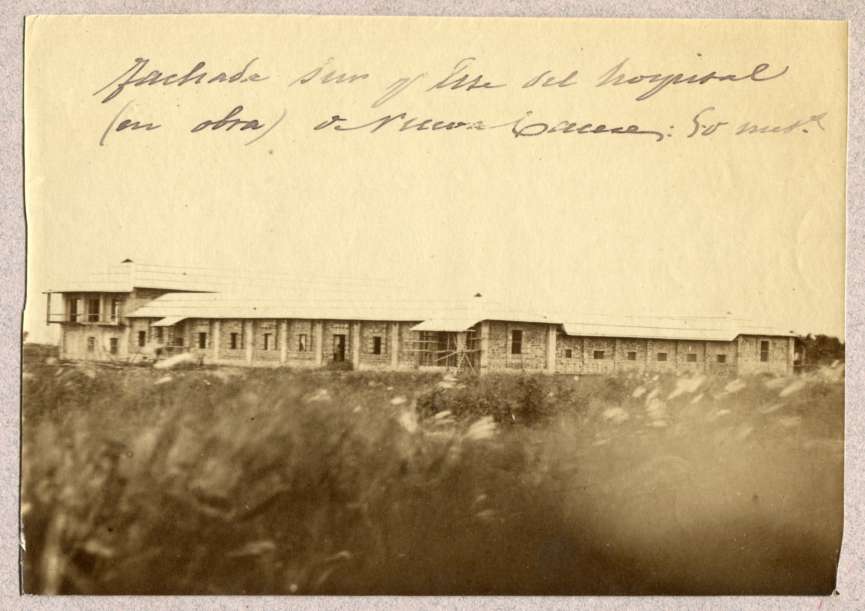 fachada Sur y Este del hospital
(en obra) de Nueva Cáceres: 50 met.s